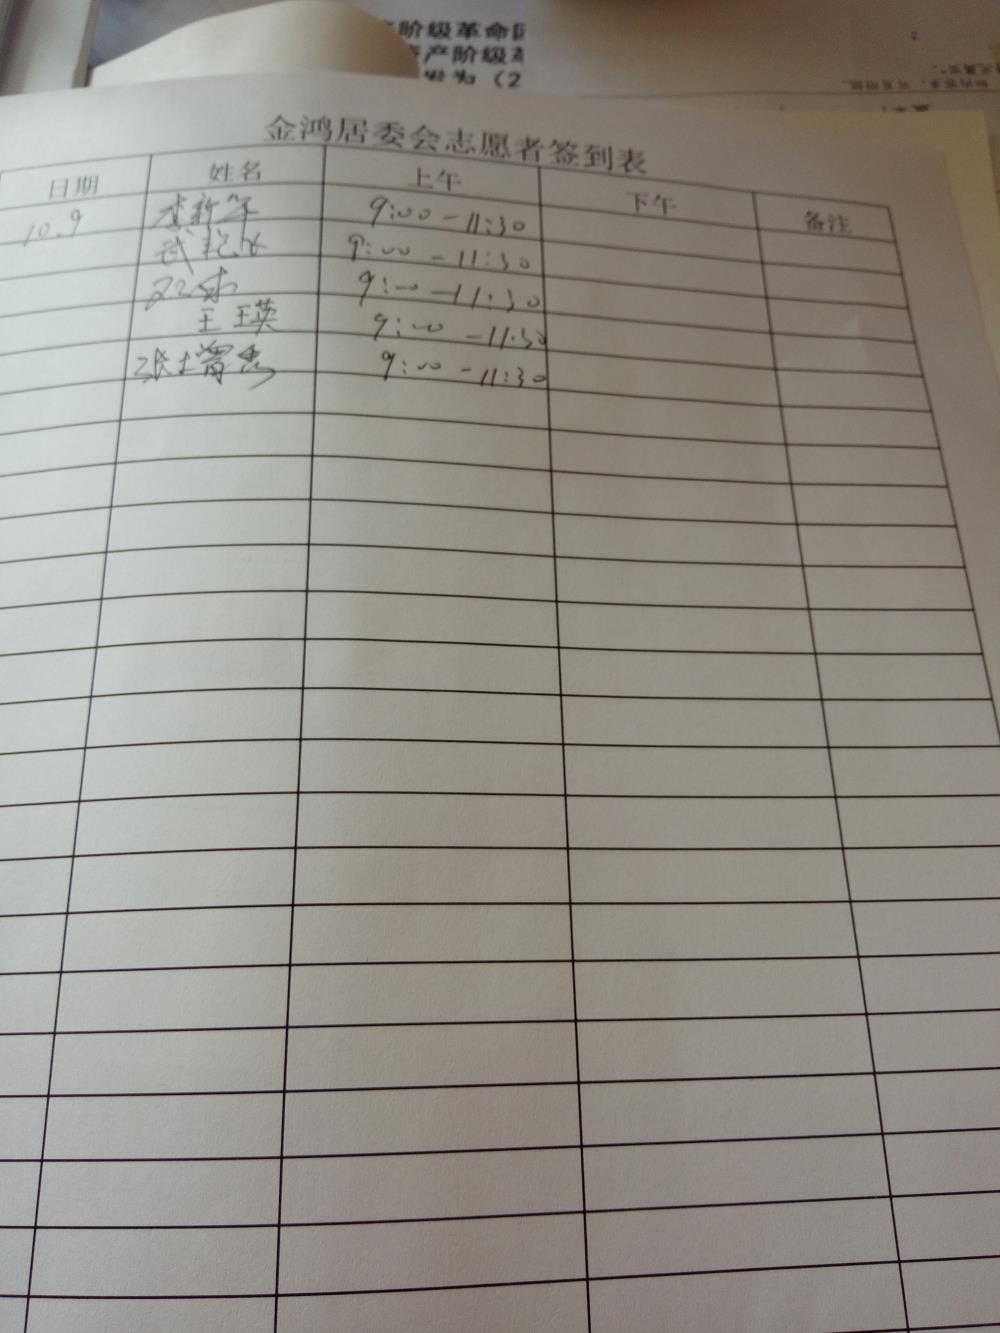 阶级革命
产阶级
发为（2
金鸿居委会志愿者签到表
日期 姓名 上午 下午 备注
10.9 李新华 9:00-11:30
武 9:00-11:30
9:00-11:30
王瑛 9:00-11:30
张增秀 9:00-11:30